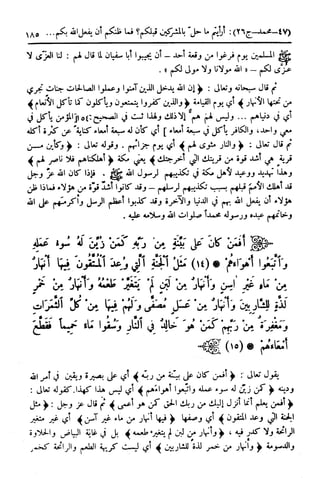 (٤٧-محمد-ج٢٦): أرأيتم ما حل بالمشركين قبلكم؟ فما ظنكم أن يفعل الله بكم... ١٨٥
المسلمين يوم فرغوا من وقعة أحد - أن يجيبوا أبا سفيان لما قال لهم : لنا العزى لا
عزى لكم - « الله مولانا ولا مولى لكم » .
ثم قال سبحانه وتعالى : ﴿ إن الله يدخل الذين آمنوا وعملوا الصالحات جنات تجري
من تحتها الأنهار ﴾ أي يوم القيامة ﴿ والذين كفروا يتمتعون ويأكلون كما تأكل الأنعام ﴾
أي في دنياهم ... وليس لهم هم إلا ذلك ولهذا ثبت في الصحيح: [المؤمن يأكل في
معي واحد، والكافر يأكل في سبعة أمعاء ] أي كأن له سبعة أمعاء كناية عن كثرة أكله
ثم قال تعالى : ﴿ والنار مثوى لهم ﴾ أي يوم جزائهم . وقوله تعالى : ﴿ وكأين مـــن
قرية هي أشد قوة من قريتك التي أخرجتك ﴾ يعني مكة ﴿ أهلكناهم فلا ناصر لهم ﴾
وهذا تهديد ووعيد لأهل مكة في تكذيبهم لرسول الله ﷺ . فإذا كان الله عز وجل
قد أهلك الأمم قبلهم بسبب تكذيبهم لرسلهم - وقد كانوا أشد قوة من هؤلاء فماذا ظن
هؤلاء أن يفعل الله بهم في الدنيا والآخرة وقد كذبوا أعظم الرسل وأكرمهم على الله
وخاتمهم عبده ورسوله محمداً صلوات الله وسلامه عليه .
أَفَمَن كَانَ عَلَىٰ بَيِّنَةٍ مِن رَبِّهِ كَمَن زُيِّنَ لَهُ سُوءُ عَمَلِهِ
وَاتَّبَعُوا أَهْوَاءَهُمْ * (١٤) مَثَلُ الْجَنَّةِ الَّتِي وُعِدَ الْمُتَّقُونَ فِيهَا أَنْهَارٌ
مِن مَاءٍ غَيْرِ آسِنٍ وَأَنْهَارٌ مِن لَبَنٍ لَمْ يَتَغَيَّرْ طَعْمُهُ وَأَنْهَارٌ مِن خَمْرٍ
لَذَّةٍ لِلشَّارِبِينَ وَأَنْهَارٌ مِن عَسَلٍ مُصَفًّى وَلَهُمْ فِيهَا مِن كُلِّ الثَّمَرَاتِ
وَمَغْفِرَةٌ مِن رَبِّهِمْ كَمَن هُوَ خَالِدٌ فِي النَّارِ وَسُقُوا مَاءً حَمِيمًا فَقَطَّعَ
أَمْعَاءَهُمْ * (١٥)
يقول تعالى : ﴿ أفمن كان على بينة من ربه ﴾ أي على بصيرة ويقين في أمر الله
ودينه ﴿ كمن زين له سوء عمله واتبعوا أهواءهم ﴾ أي ليس هذا كهذا. كقوله تعالى :
﴿ أفمن يعلم أنما أنزل إليك من ربك الحق كمن هو أعمى ﴾ ثم قال عز وجل : ﴿ مثل
الجنة التي وعد المتقون ﴾ أي وصفها ﴿ فيها أنهار من ماء غير آسن ﴾ أي غير متغير
الرائحة ولا كدر فيه ، ﴿ وأنهار من لبن لم يتغير طعمه ﴾ بل في غاية البياض والحلاوة
والدسومة ﴿ وأنهار من خمر لذة للشاربين ﴾ أي ليست كريهة الطعم والرائحة كخمر